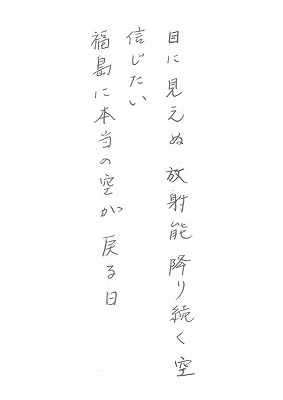 目に見えぬ放射能降り続く空
信じたい
福島に本当の空が戻る日